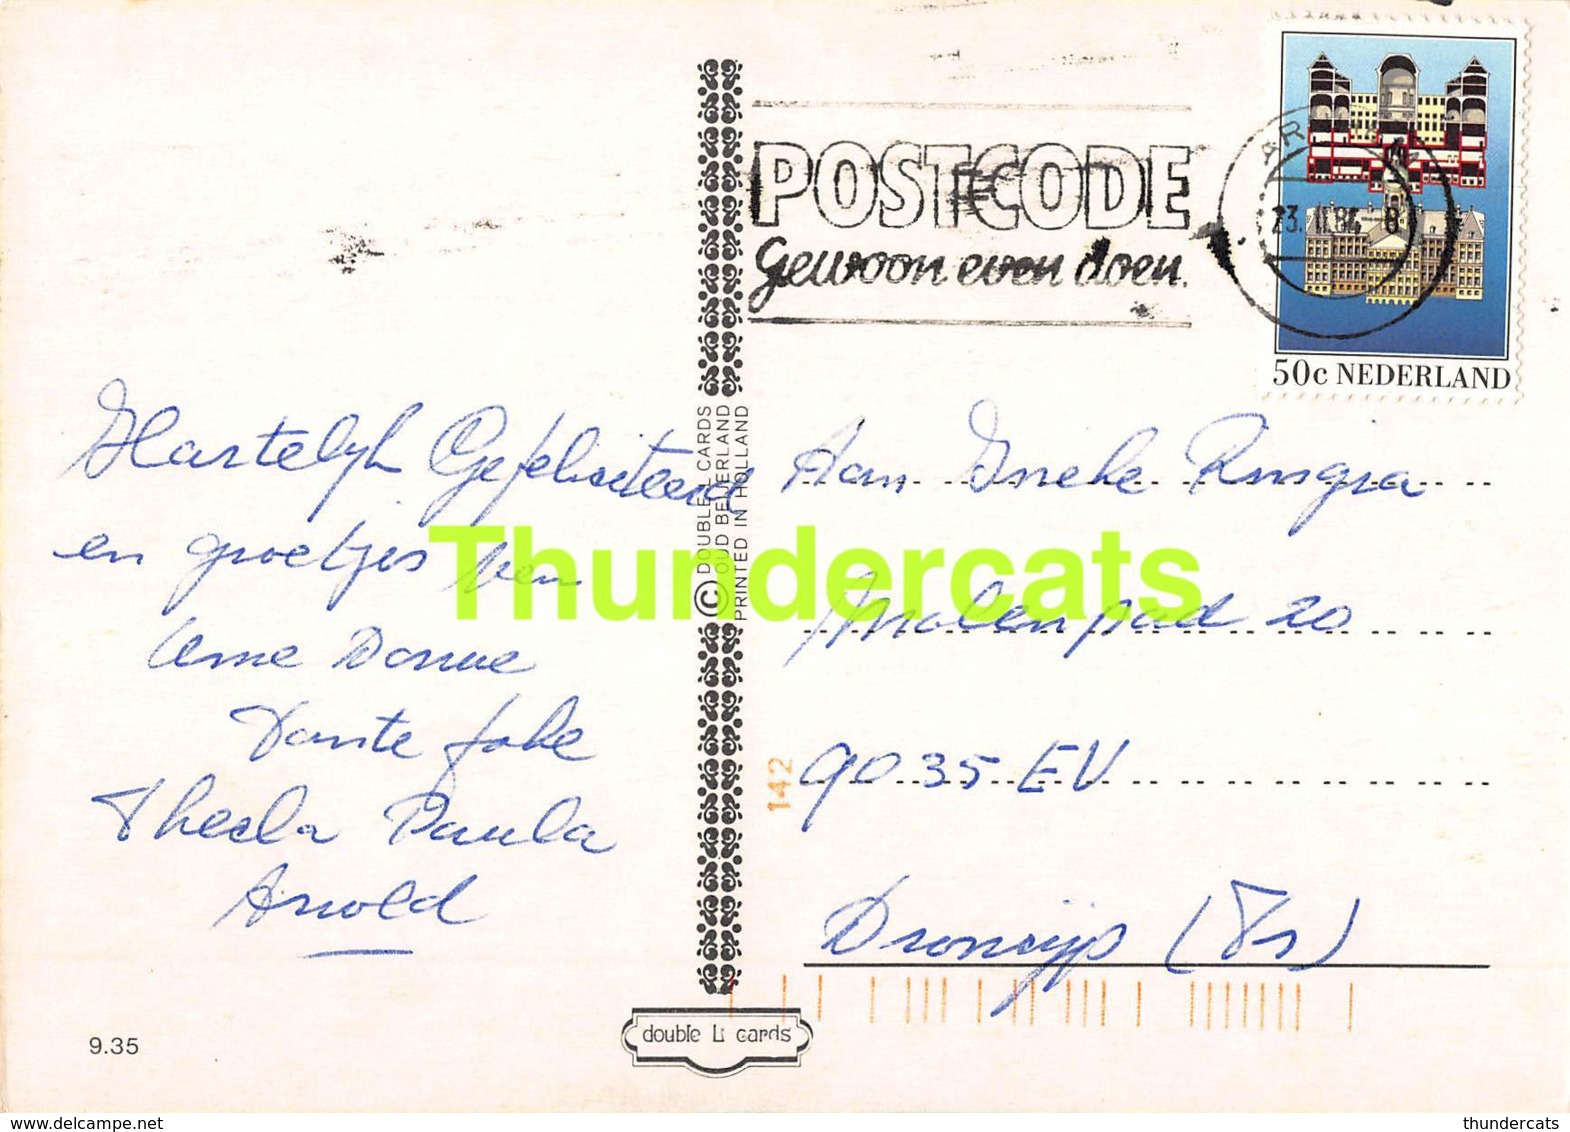 POSTCODE
Gewoon even doen.
50c NEDERLAND
Hartelijk Gefeliciteerd
en groetjes van
Dante Joke
Thecla Paula
Arnold
© DOUBLE L CARDS
OUD BEIJERLAND
PRINTED IN HOLLAND
Aan Ineke Ringia
Molenpad 20
142
9035 EV
Dronrijp (Fr)
double L cards
9.35
Thundercats
thundercats